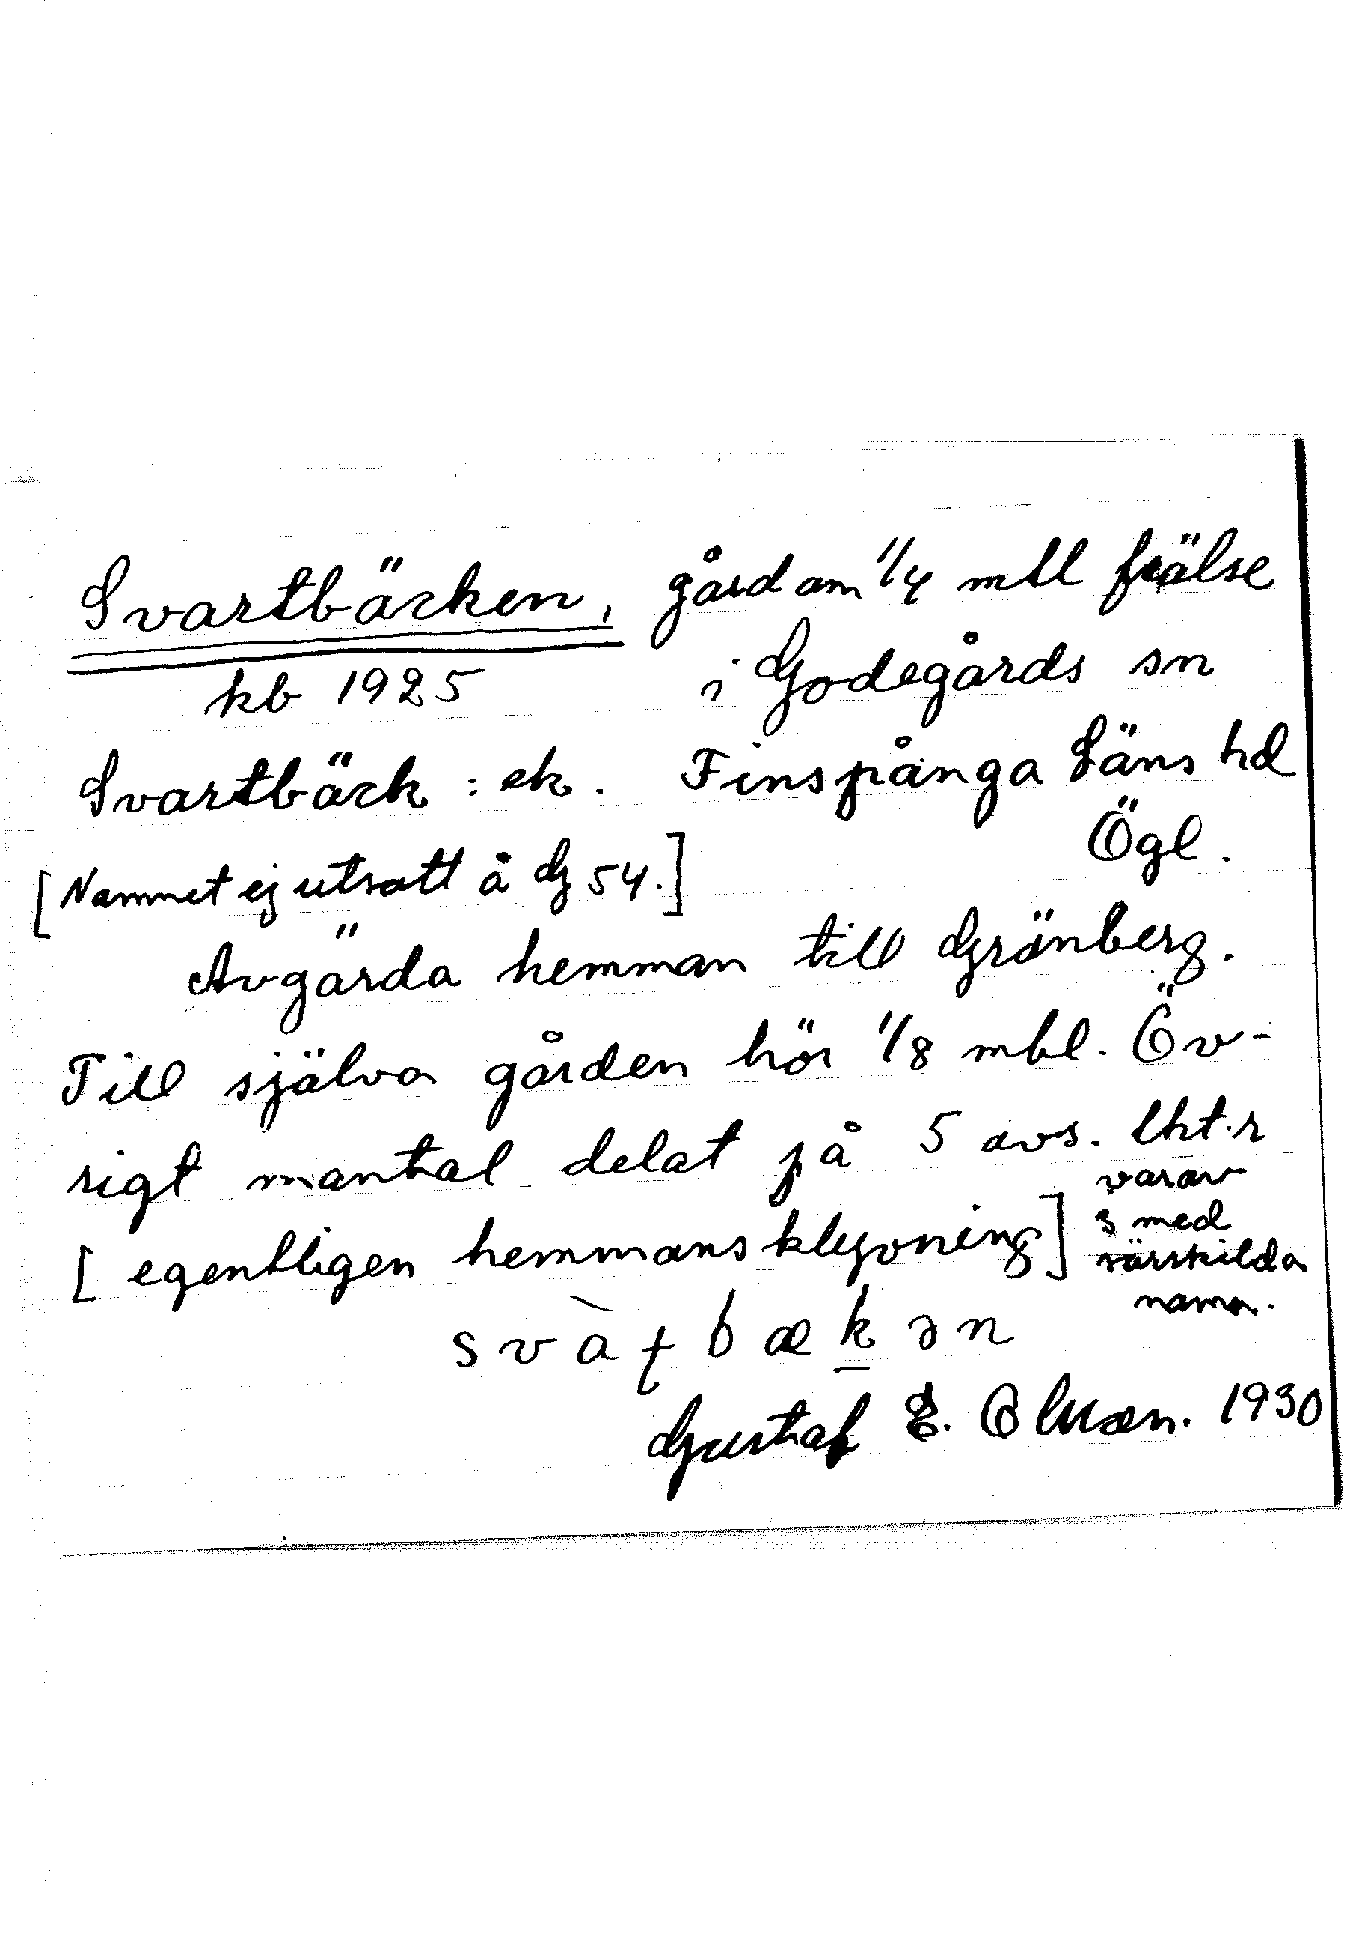 Svartbäcken, gård om 1/4 mtl frälse
kb 1925 i Godegårds sn
Svartbäck : ek. Finspånga Läns hd
Ögl.
[Namnet ej utsatt å Gg 54.]
Avgärda hemman till Gränberg.
Till själva gården hör 1/8 mtl. Öv-
rigt mantal delat på 5 avs. lht.r
varav
s med
särskilda
namn.
[egentligen hemmansklyvning]
svàʈbækən
Gustaf E.
1930